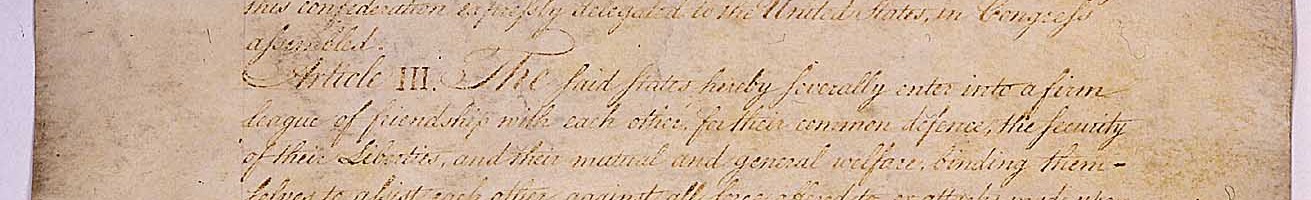 this confederation expressly delegated to the United States, in Congress
assembled.
Article III. The said states hereby severally enter into a firm
league of friendship with each other, for their common defence, the security
of their Liberties, and their mutual and general welfare, binding them-
selves to assist each other, against all force offered to, or attacks made upon